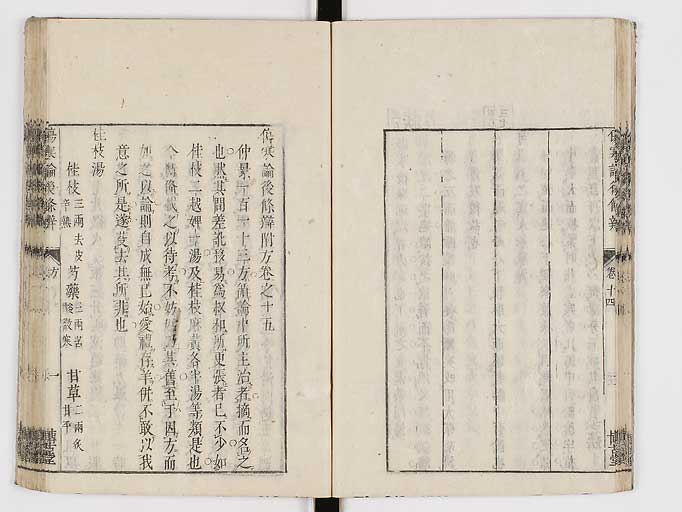 傷寒論後條辨
卷十四
博古堂
傷寒論後條辨附方卷之十五
仲景一百一十三方俱論中所主治者摘而名之
也然其間差訛移易爲叔和所更張者已不少如
桂枝二越婢一湯及桂枝麻黃各半湯等類是也
今備載之以待考不妨仍其舊至于因方而
如之以論則自成無已始愛禮存羊併不敢以我
意之所是遂芟去其所非也
桂枝湯
桂枝三兩去皮辛熱 芍藥三兩苦酸微寒 甘草二兩炙甘平
傷寒論後條辨
方
一
博古堂